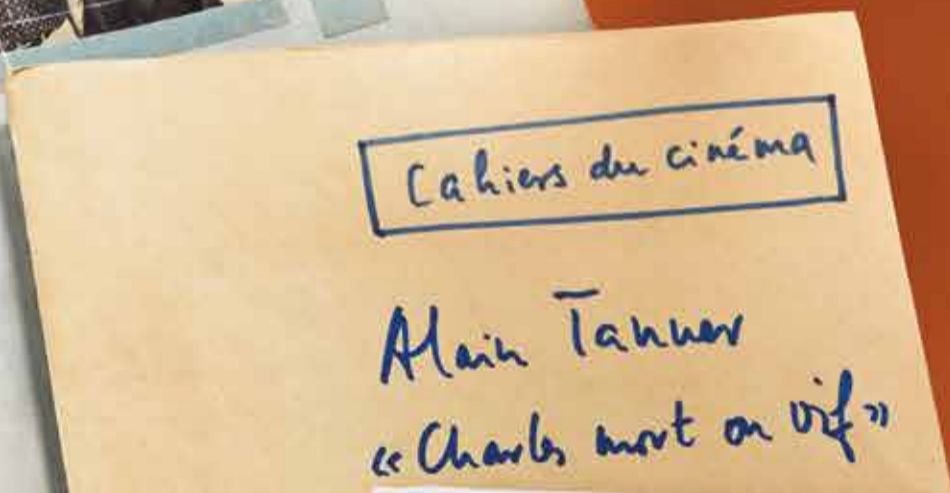 Cahiers du cinéma
Alain Tanner
«Charles mort ou vif»